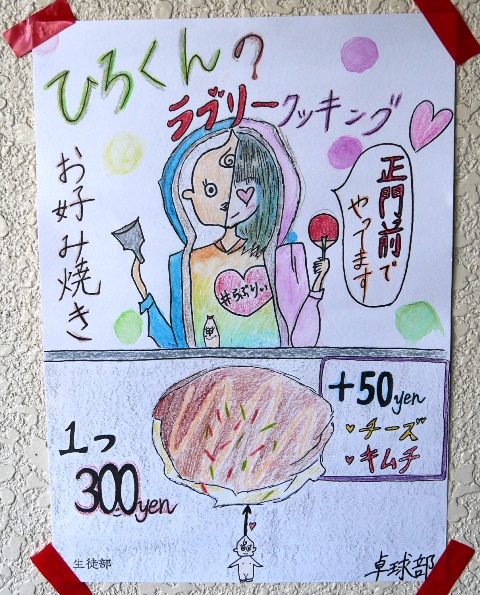 ひろくんの
ラブリークッキング
お好み焼き
正門前で
やってます
#らぶりぃ
+50yen
チーズ
キムチ
1つ
300yen
生徒部
卓球部